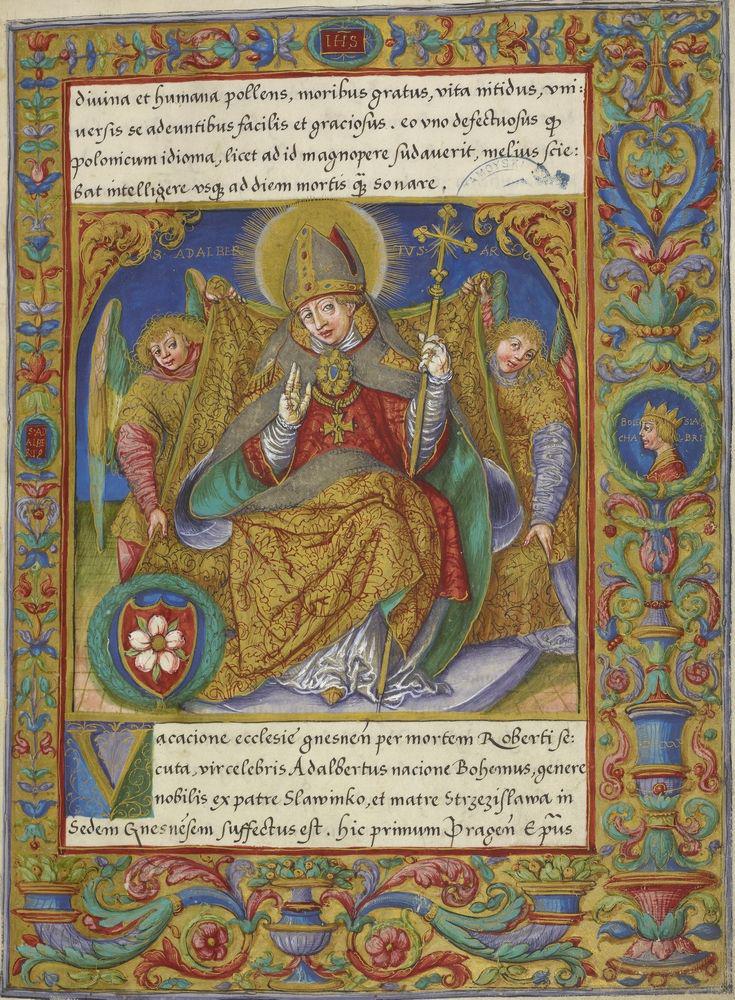 IHS
divina et humana pollens, moribus gratus, vita nitidus, vni:
versis se adeuntibus facilis et graciosus. eo vno defectuosus ꝙ
polonicum idioma, licet ad id magnopere sudaverit, melius scie:
bat intelligere vsqꝫ ad diem mortis qꝫ̃ sonare.
ZAMOYSK
S ADALBER TVS AR
S AD
ALBE
BOLE SLA
CHA BRI
Vacacione ecclesie gnesneñ per mortem Roberti se:
cuta, vir celebris Adalbertus nacione Bohemus, genere
nobilis ex patre Slawinko, et matre Strzezislawa in
Sedem Gnesnẽsem suffectus est. hic primum Prageñ Ep̃us